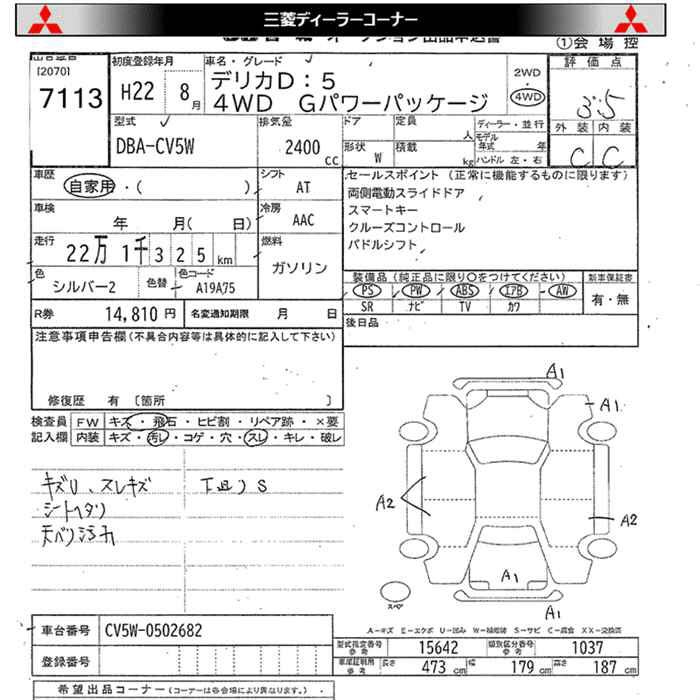 三菱ディーラーコーナー
①会場控
[2070]
7113
初度登録年月
H22 8月
車名・グレード
デリカD：5
4WD Gパワーパッケージ
2WD
4WD
評価点
3.5
外装 内装
C C
型式
DBA-CV5W
排気量
2400 CC
ドア
定員 人
形状 W
積載 kg
ディーラー・並行
モデル年式 年
ハンドル 左・右
車歴
自家用・( )
シフト
AT
車検
年 月( 日)
冷房
AAC
走行
22万1千325km
燃料
ガソリン
色
シルバー2
色替
色コード
A19A75
セールスポイント (正常に機能するものに限ります)
両側電動スライドドア
スマートキー
クルーズコントロール
パドルシフト
装備品(純正品に限り○をつけてください)
新車保証書
PS PW ABS エアB AW
SR ナビ TV カワ
有・無
R券 14,810円
名変通知期限 月 日
後日品
注意事項申告欄(不具合内容等は具体的に記入して下さい)
修復歴 有 [箇所 ]
検査員記入欄
FW キズ・飛石・ヒビ割・リペア跡・×要
内装 キズ・汚レ・コゲ・穴・スレ・キレ・破レ
キズU、スレキズ
シートヘタリ
天ベリ汚れ
下回りS
A1
A1
A2
A2
A1
A1
スペア
A－キズ E－エクボ U－凹み W－補修跡 S－サビ C－腐食 XX－交換済
車台番号 CV5W-0502682
登録番号
型式指定番号 参考 15642
類別区分番号 参考 1037
車庫証明用 参考 長さ 473cm 幅 179cm 高さ 187cm
希望出品コーナー(コーナーは各会場により異なります。)